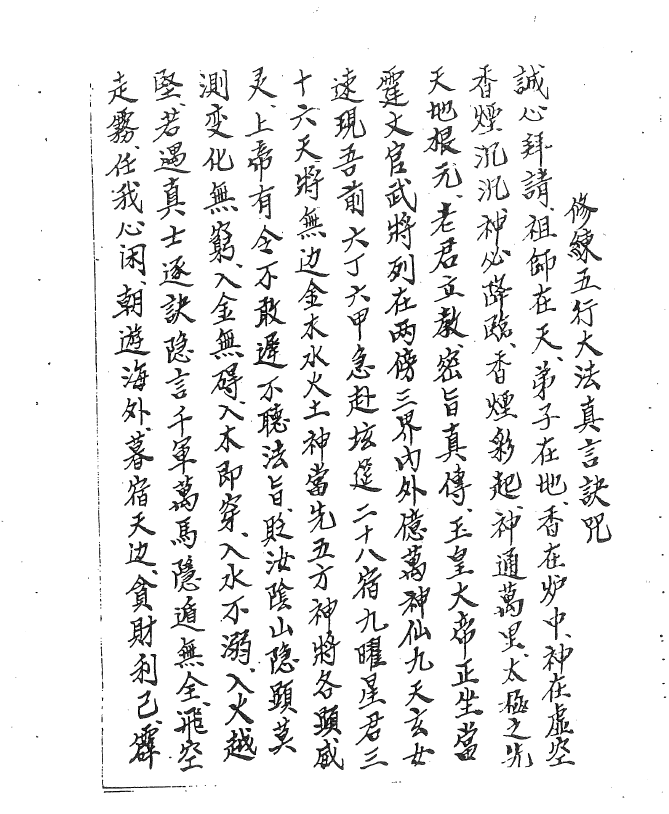 修練五行大法真言訣咒
誠心拜請、祖師在天、弟子在地、香在炉中、神在虛空
香煙沉沉神必降臨、香煙彩起、神通萬里、太極之先
天地根元、老君立教、密旨真傳、玉皇大帝正坐當
霆文官武將列在两傍三界内外億萬神仙九天玄女
速現吾前六丁六甲急赴垓筵二十八宿九曜星君三
十六天將無边金木水火土神當先五方神將各顕威
灵、上帝有令不敢遲不聽法旨、貶汝陰山隐顕莫
測变化無窮、入金無碍、入木即穿、入水不溺、入火越
堅、若遇真士逐訣隐言千軍萬馬隱遁無全、飛空
走霧、任我心闲、朝遊海外、暮宿天边、貪財利己、霹